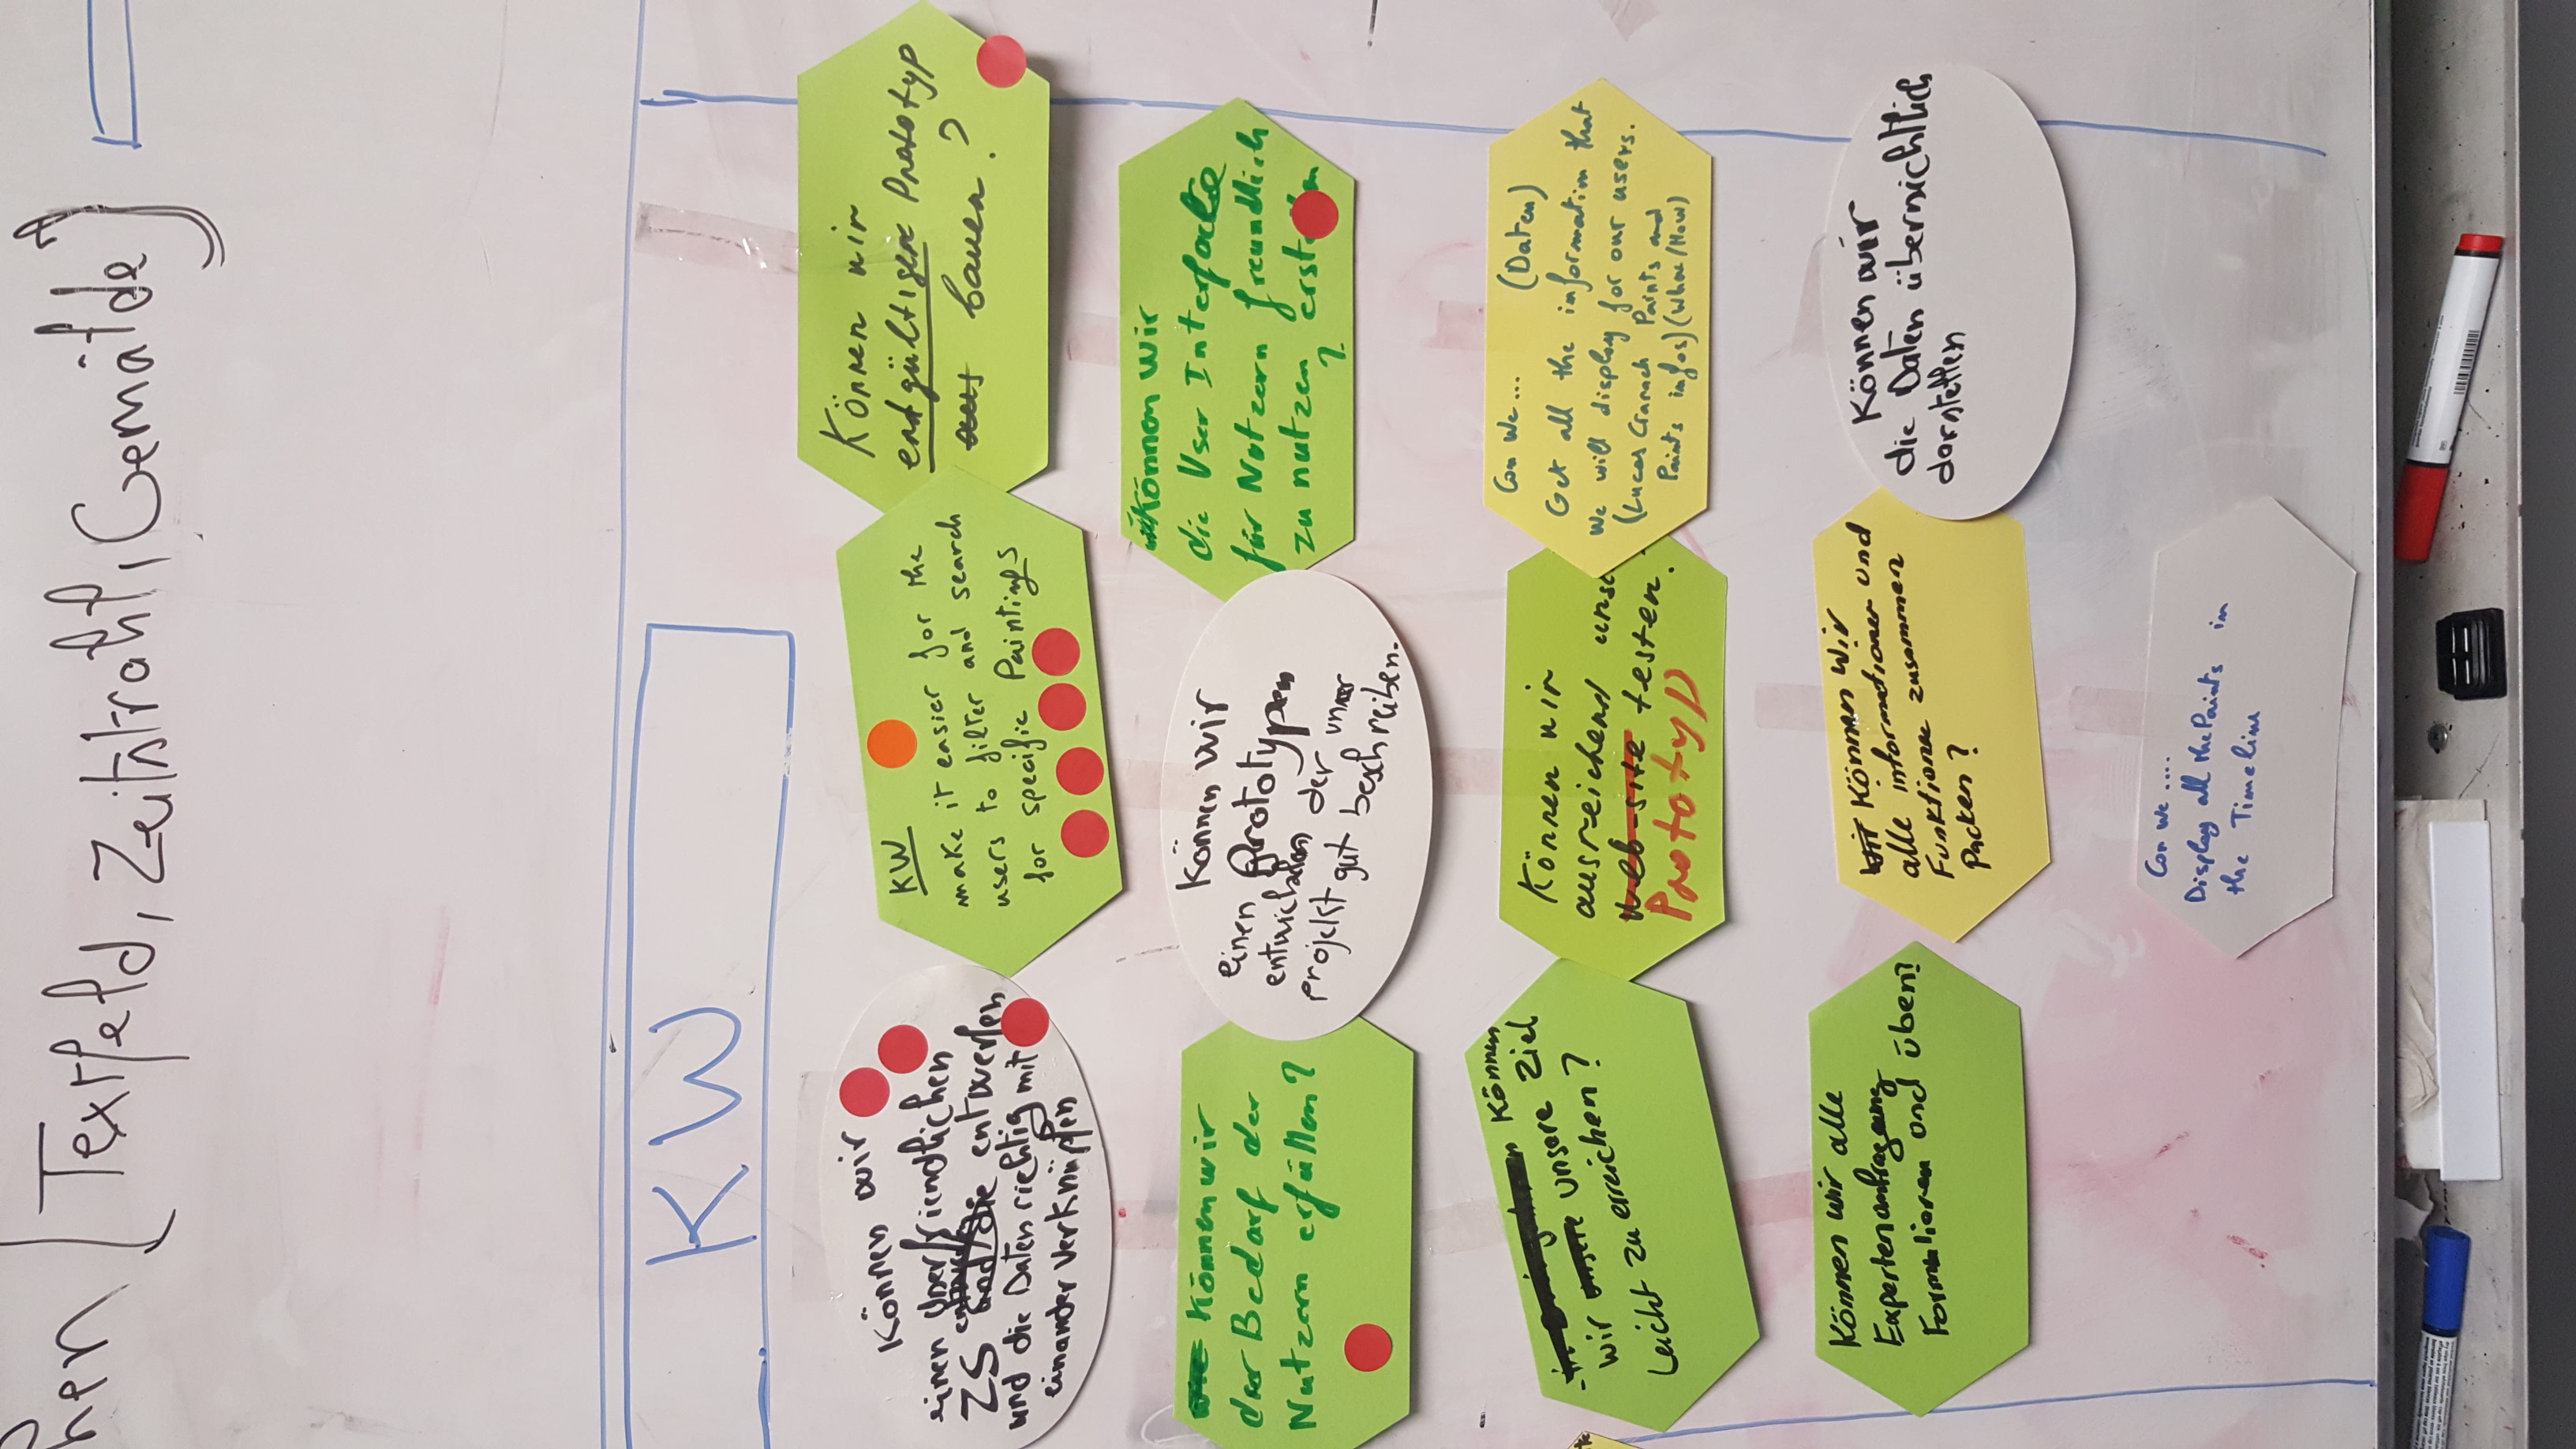 hen [Textfeld, Zeitstrahl, Gemälde]
KW
Können wir
einen Userfriendlichen
ZS entwerfen
und die Daten richtig mit
einander Verknüpfen
KW
make it easier for the
users to filter and search
for specific Paintings
Können wir
endgültigen Prototyp
aus bauen?
wie Können wir
der Bedarf der
Nutzern erfüllen?
Können wir
einen Prototypen
entwickeln der unser
projekt gut beschreiben.
Können wir
die User Interface
für Nutzern freundlich
zu nutzen erstellen
?
Können
wir unsere unsere Ziel
Leicht zu erreichen?
Können wir
ausreichend unse
web-site testen.
Prototyp
Can we... (Daten)
Get all the information that
we will display for our users.
(Lucas Cranach Paints and
Paints infos) (Whoe/How)
Können wir alle
Experten
Formulieren und üben?
wir Können wir
alle informationen und
Funktionen zusammen
Packen?
Können wir
die Daten übersichtlich
darstellen
Can we....
Display all the Paints in
the Timeline